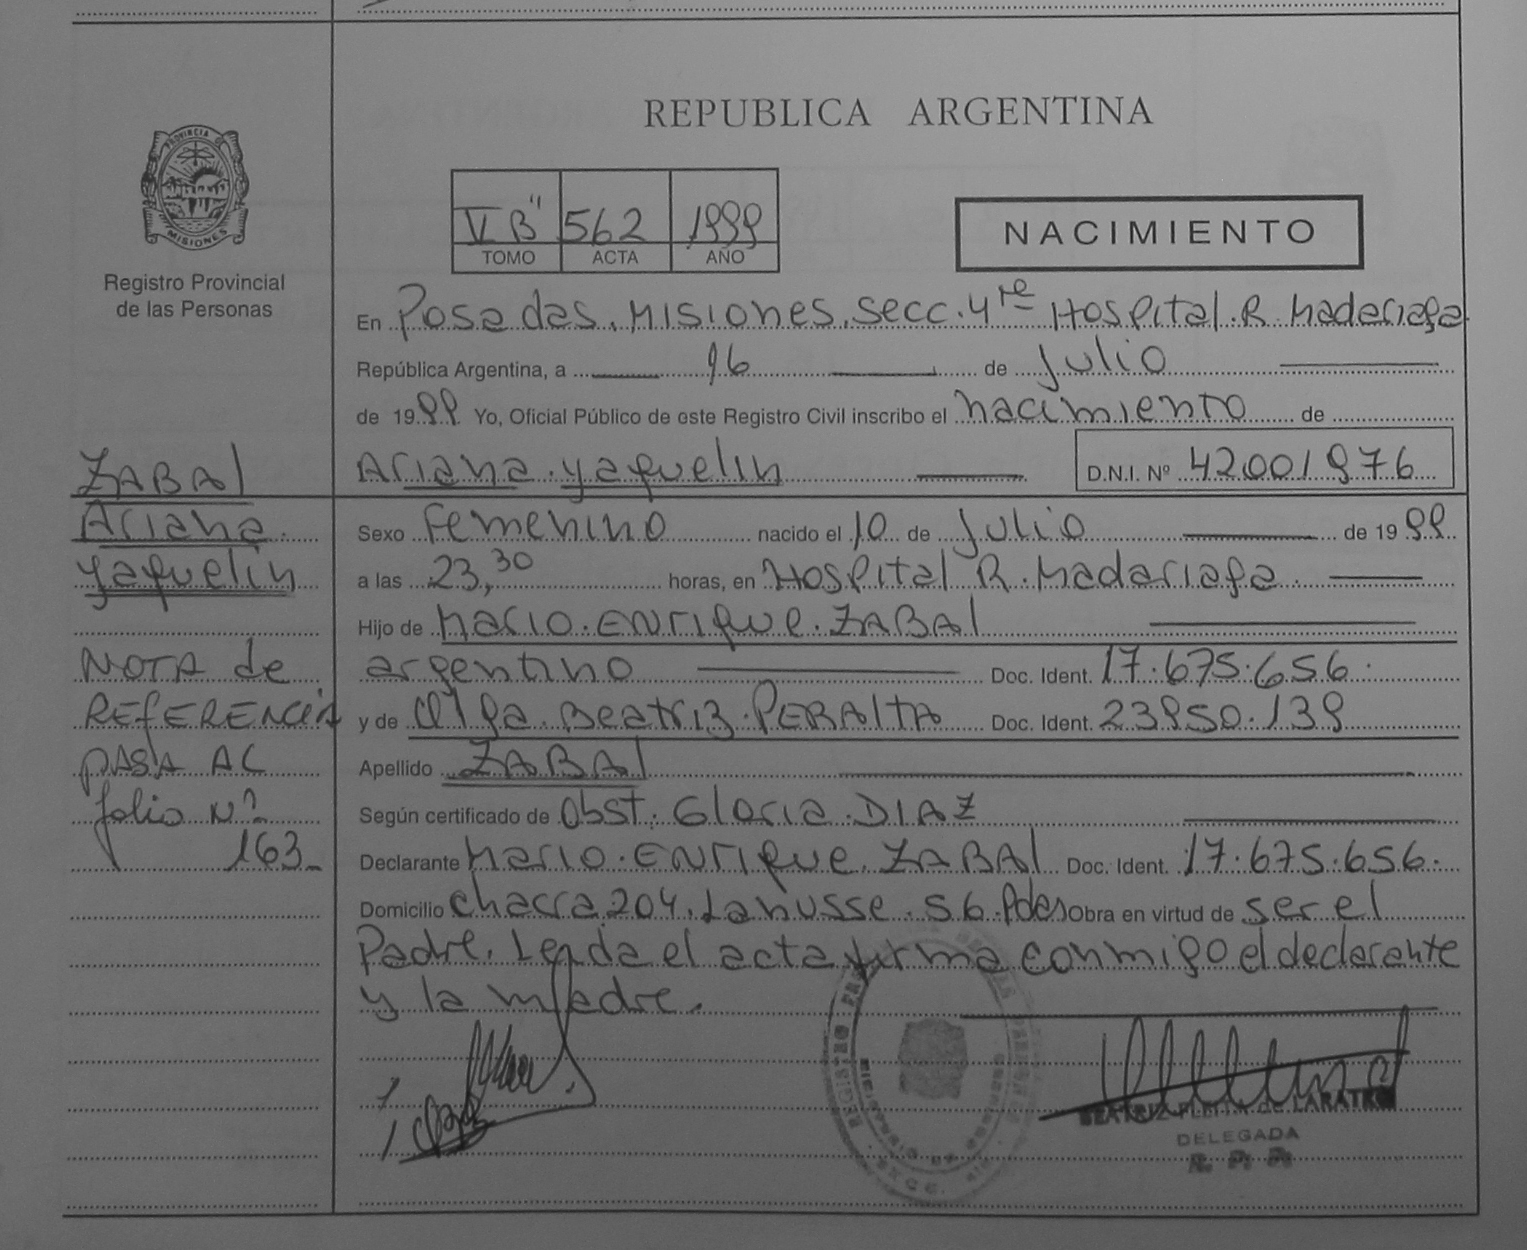 REPUBLICA ARGENTINA
PROVINCIA
MISIONES
Registro Provincial
de las Personas
V B" 562 1999
TOMO ACTA AÑO
NACIMIENTO
En Posadas. Misiones. secc. 4re Hospital. R. Madariaga
República Argentina, a 16 de Julio
de 1999 Yo, Oficial Público de este Registro Civil inscribo el nacimiento de
Ariana. yaquelin D.N.I. Nº 42001976
ZABAl
Ariana.
yaquelin
NOTA de
REfERENCIA
PASA AL
folio Nº
163
Sexo femenino nacido el 10 de Julio de 1999
a las 23,30 horas, en Hospital R. Madariaga.
Hijo de Mario. ENrique. ZABAl
argentino Doc. Ident. 17.675.656.
y de Olga. Beatriz. PERAlTA Doc. Ident. 23950.139
Apellido ZABAl
Según certificado de Obst. Gloria. DIAZ
Declarante Mario. ENrique. ZABAl Doc. Ident. 17.675.656.
Domicilio chacra 204. Lanusse. S6. Pdas Obra en virtud de ser el
Padre. Leida el acta firma conmigo el declarante
y la madre.
REGISTRO
DE LARATRO
DELEGADA
R. P. P.